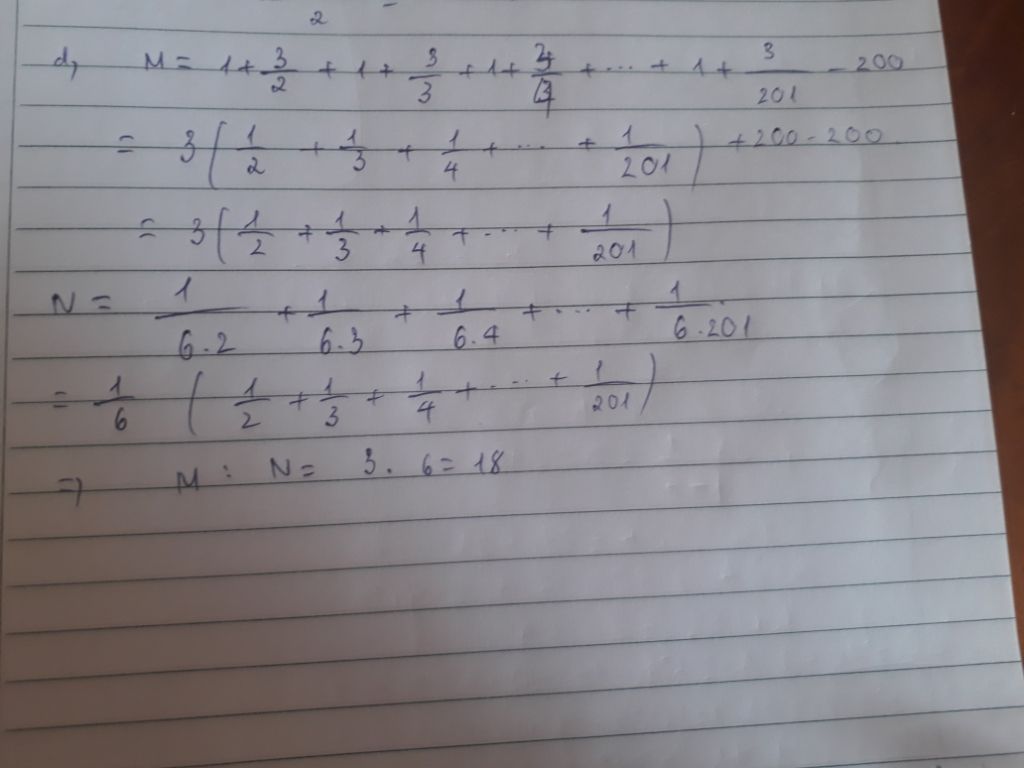 2
d, M = 1 + 3/2 + 1 + 3/3 + 1 + 3/4 + ... + 1 + 3/201 - 200
= 3 ( 1/2 + 1/3 + 1/4 + ... + 1/201 ) + 200 - 200
= 3 ( 1/2 + 1/3 + 1/4 + ... + 1/201 )
N = 1/6.2 + 1/6.3 + 1/6.4 + ... + 1/6.201
= 1/6 ( 1/2 + 1/3 + 1/4 + ... + 1/201 )
=> M : N = 3 . 6 = 18